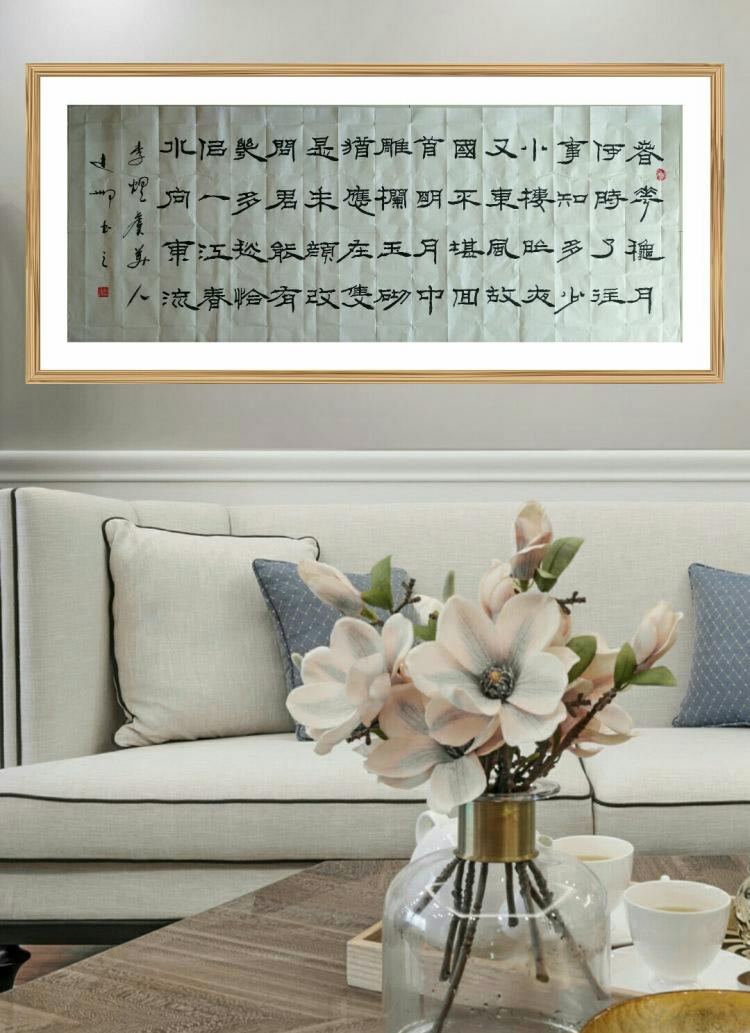 春華穐月
何時了往
事知多少
小樓昨夜
又東風故
國不堪回
首明月中
雕欄玉砌
猶應在隻
是朱顏改
問君能有
幾多愁恰
佀一江春
水向東流
李煜虞美人
书之